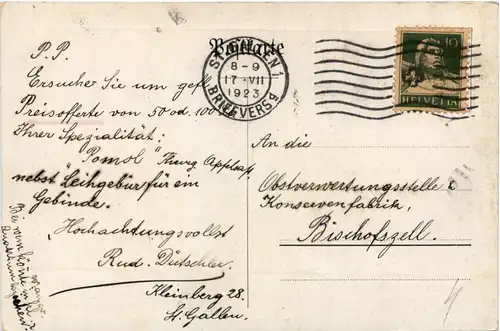 Postkarte
ST. GALLEN 1
8-9
17.VII
1923
BRIEFVERS
10
HELVETIA
P. P.
Ersucher Sie um gefl.
Preisofferte von 50 od. 100
Ihrer Spezialität:
"Pomol" Thurg. Apfelsaft
nebst Leihgebür für ein
Gebinde.
Hochachtungsvollst
Rud. Dütschler
Kleinberg 28.
St. Gallen.
An die
Obstverwertungsstelle &
Konservenfabrik,
Bischofszell.